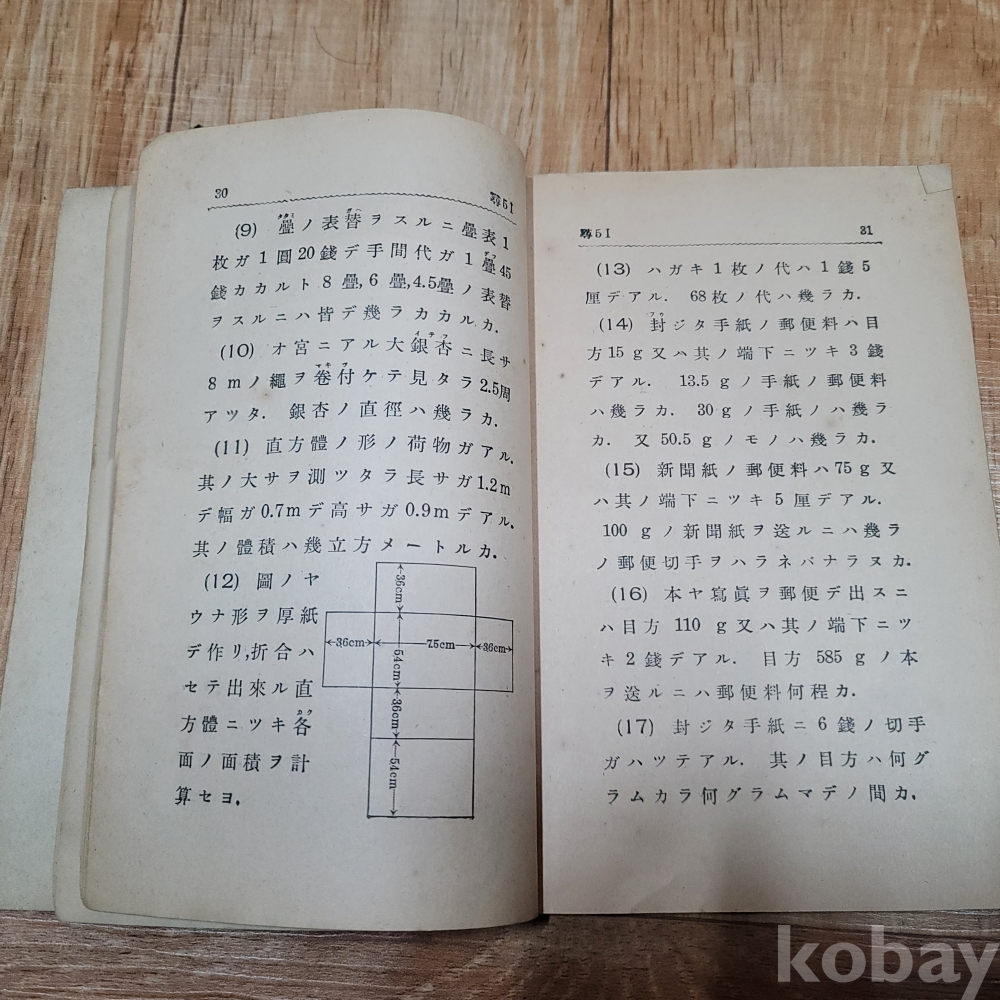 30
尋5I
(9) 疊ノ表替ヲスルニ疊表1
枚ガ1圓20錢デ手間代ガ1疊45
錢カカルト8疊,6疊,4.5疊ノ表替
ヲスルニハ皆デ幾ラカカルカ.
(10) オ宮ニアル大銀杏ニ長サ
8mノ繩ヲ卷付ケテ見タラ2.5周
アツタ. 銀杏ノ直徑ハ幾ラカ.
(11) 直方體ノ形ノ荷物ガアル.
其ノ大サヲ測ツタラ長サガ1.2m
デ幅ガ0.7mデ高サガ0.9mデアル.
其ノ體積ハ幾立方メートルカ.
(12) 圖ノヤ
ウナ形ヲ厚紙
デ作リ,折合ハ
セテ出來ル直
方體ニツキ各
面ノ面積ヲ計
算セヨ.
36cm
36cm
75cm
36cm
54cm
36cm
54cm
尋5I
31
(13) ハガキ1枚ノ代ハ1錢5
厘デアル. 68枚ノ代ハ幾ラカ.
(14) 封ジタ手紙ノ郵便料ハ目
方15g又ハ其ノ端下ニツキ3錢
デアル. 13.5gノ手紙ノ郵便料
ハ幾ラカ. 30gノ手紙ノハ幾ラ
カ. 又50.5gノモノハ幾ラカ.
(15) 新聞紙ノ郵便料ハ75g又
ハ其ノ端下ニツキ5厘デアル.
100gノ新聞紙ヲ送ルニハ幾ラ
ノ郵便切手ヲハラネバナラヌカ.
(16) 本ヤ寫眞ヲ郵便デ出スニ
ハ目方110g又ハ其ノ端下ニツ
キ2錢デアル. 目方585gノ本
ヲ送ルニハ郵便料何程カ.
(17) 封ジタ手紙ニ6錢ノ切手
ガハツテアル. 其ノ目方ハ何グ
ラムカラ何グラムマデノ間カ.
kobay